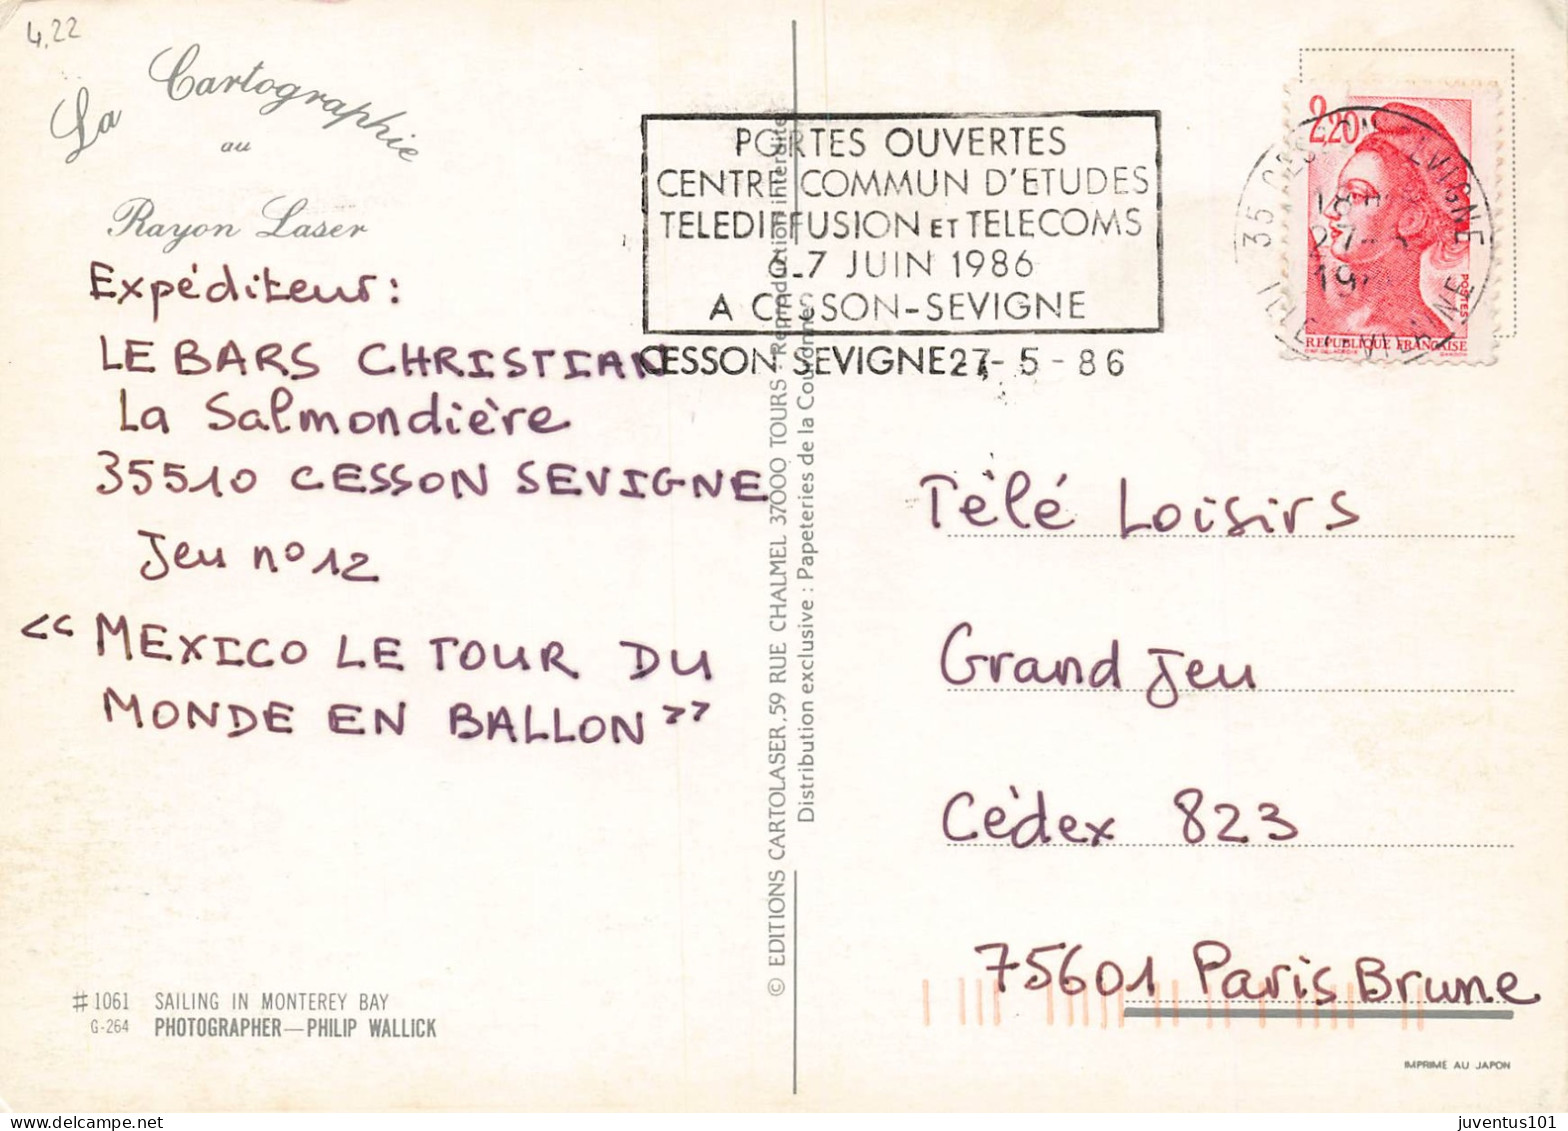 4,22
La Cartographie
au
Rayon Laser
Expéditeur:
LE BARS CHRISTIAN
La Salmondière
35510 CESSON SEVIGNE
Jeu n° 12
<< MEXICO LE TOUR DU
MONDE EN BALLON >>
#1061 SAILING IN MONTEREY BAY
G-264 PHOTOGRAPHER—PHILIP WALLICK
© EDITIONS CARTOLASER, 59 RUE CHALMEL 37000 TOURS - Reproduction interdite
Distribution exclusive : Papeteries de la Couronne
PORTES OUVERTES
CENTRE COMMUN D'ETUDES
TELEDIFFUSION ET TELECOMS
6.7 JUIN 1986
A CESSON-SEVIGNE
CESSON SEVIGNE 27-5-86
2,20
POSTES
REPUBLIQUE FRANÇAISE
35 CESSON SEVIGNE
18
27-
19
ILLE ET VILAINE
Télé Loisirs
Grand Jeu
Cèdex 823
75601 Paris Brune
IMPRIMÉ AU JAPON
juventus101